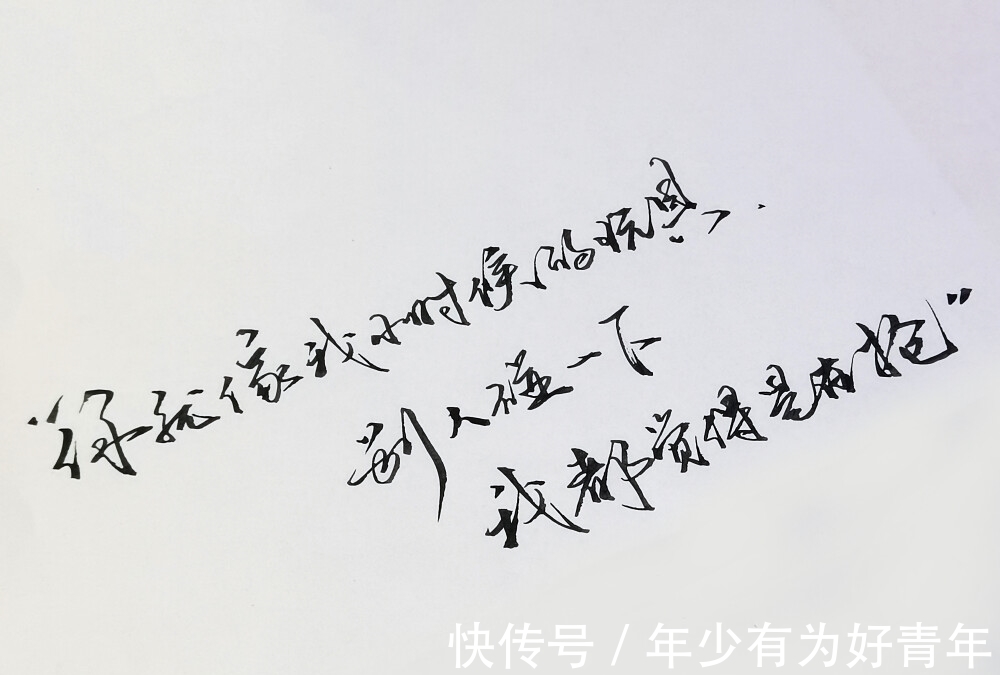 “你就像我小时候的玩具,
别人碰一下
我都觉得是在抢”
快传号 / 年少有为好青年